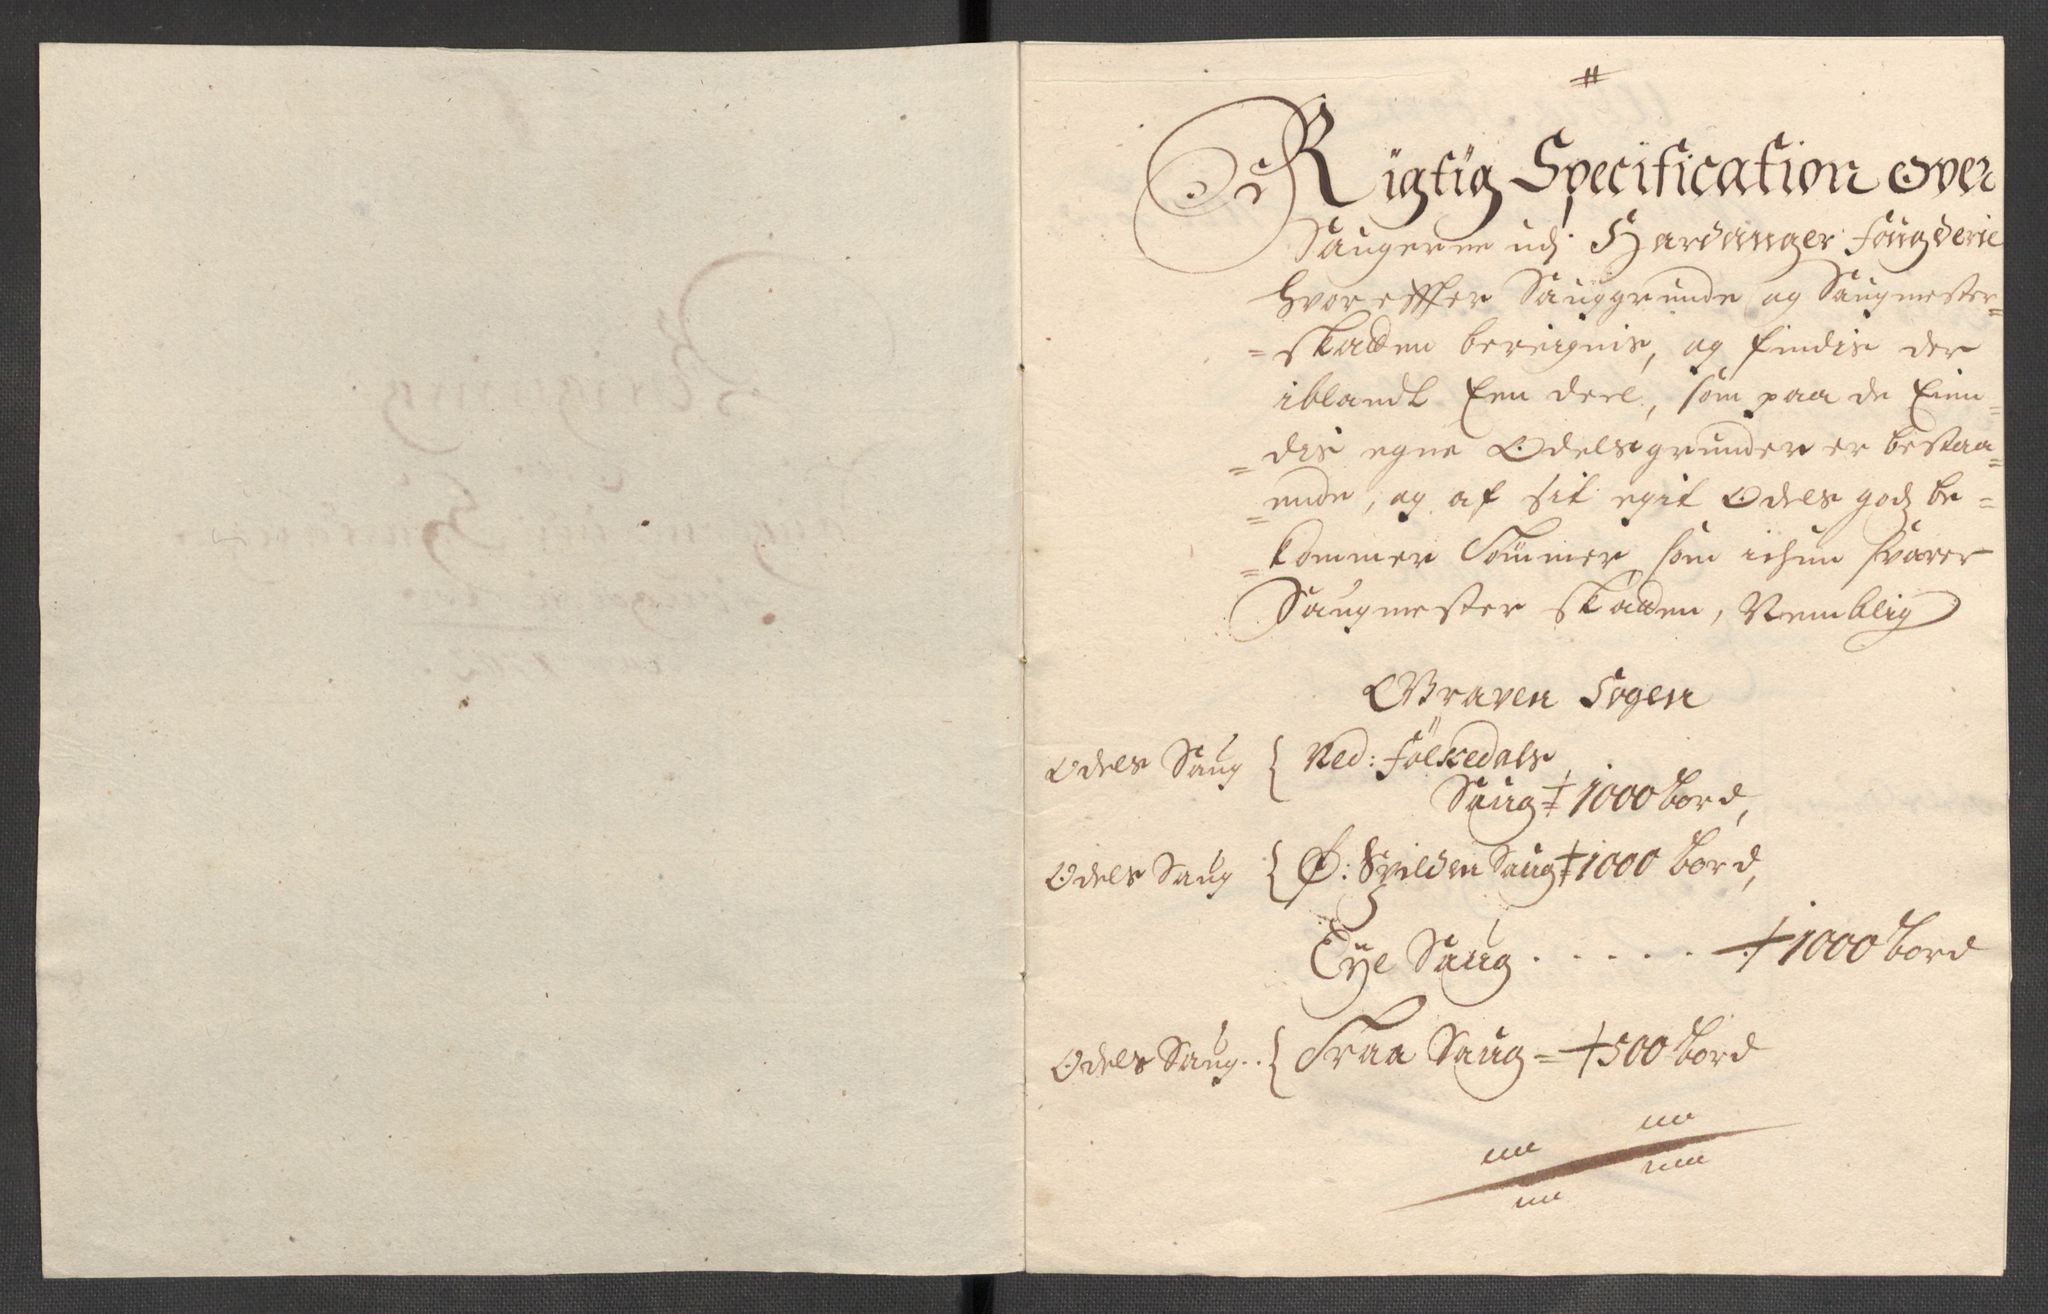 Rigtig Specification over
Saugerne udj Hardanger fougderie
hvor effter Sauggrunde og Saugmester-
=skatten bereignis, og findis der
iblandt Een deel, som paa de Eien=
=dis egne Odelsgrunder er bestaa=
=ende, og af sit egit Odels godz be=
=kommer Tømmer, som ichun svarer
Saugmester skatten, Nemblig
Graven Sogen
Odels Saug { Ned: Folkedals
Saug 1000 bord,
Odels Saug { Ø: Spilden Saug 1000 bord,
Eÿe Saug . . . . . 1000 bord
Odels Saug.. { Traa Saug = 500 bord